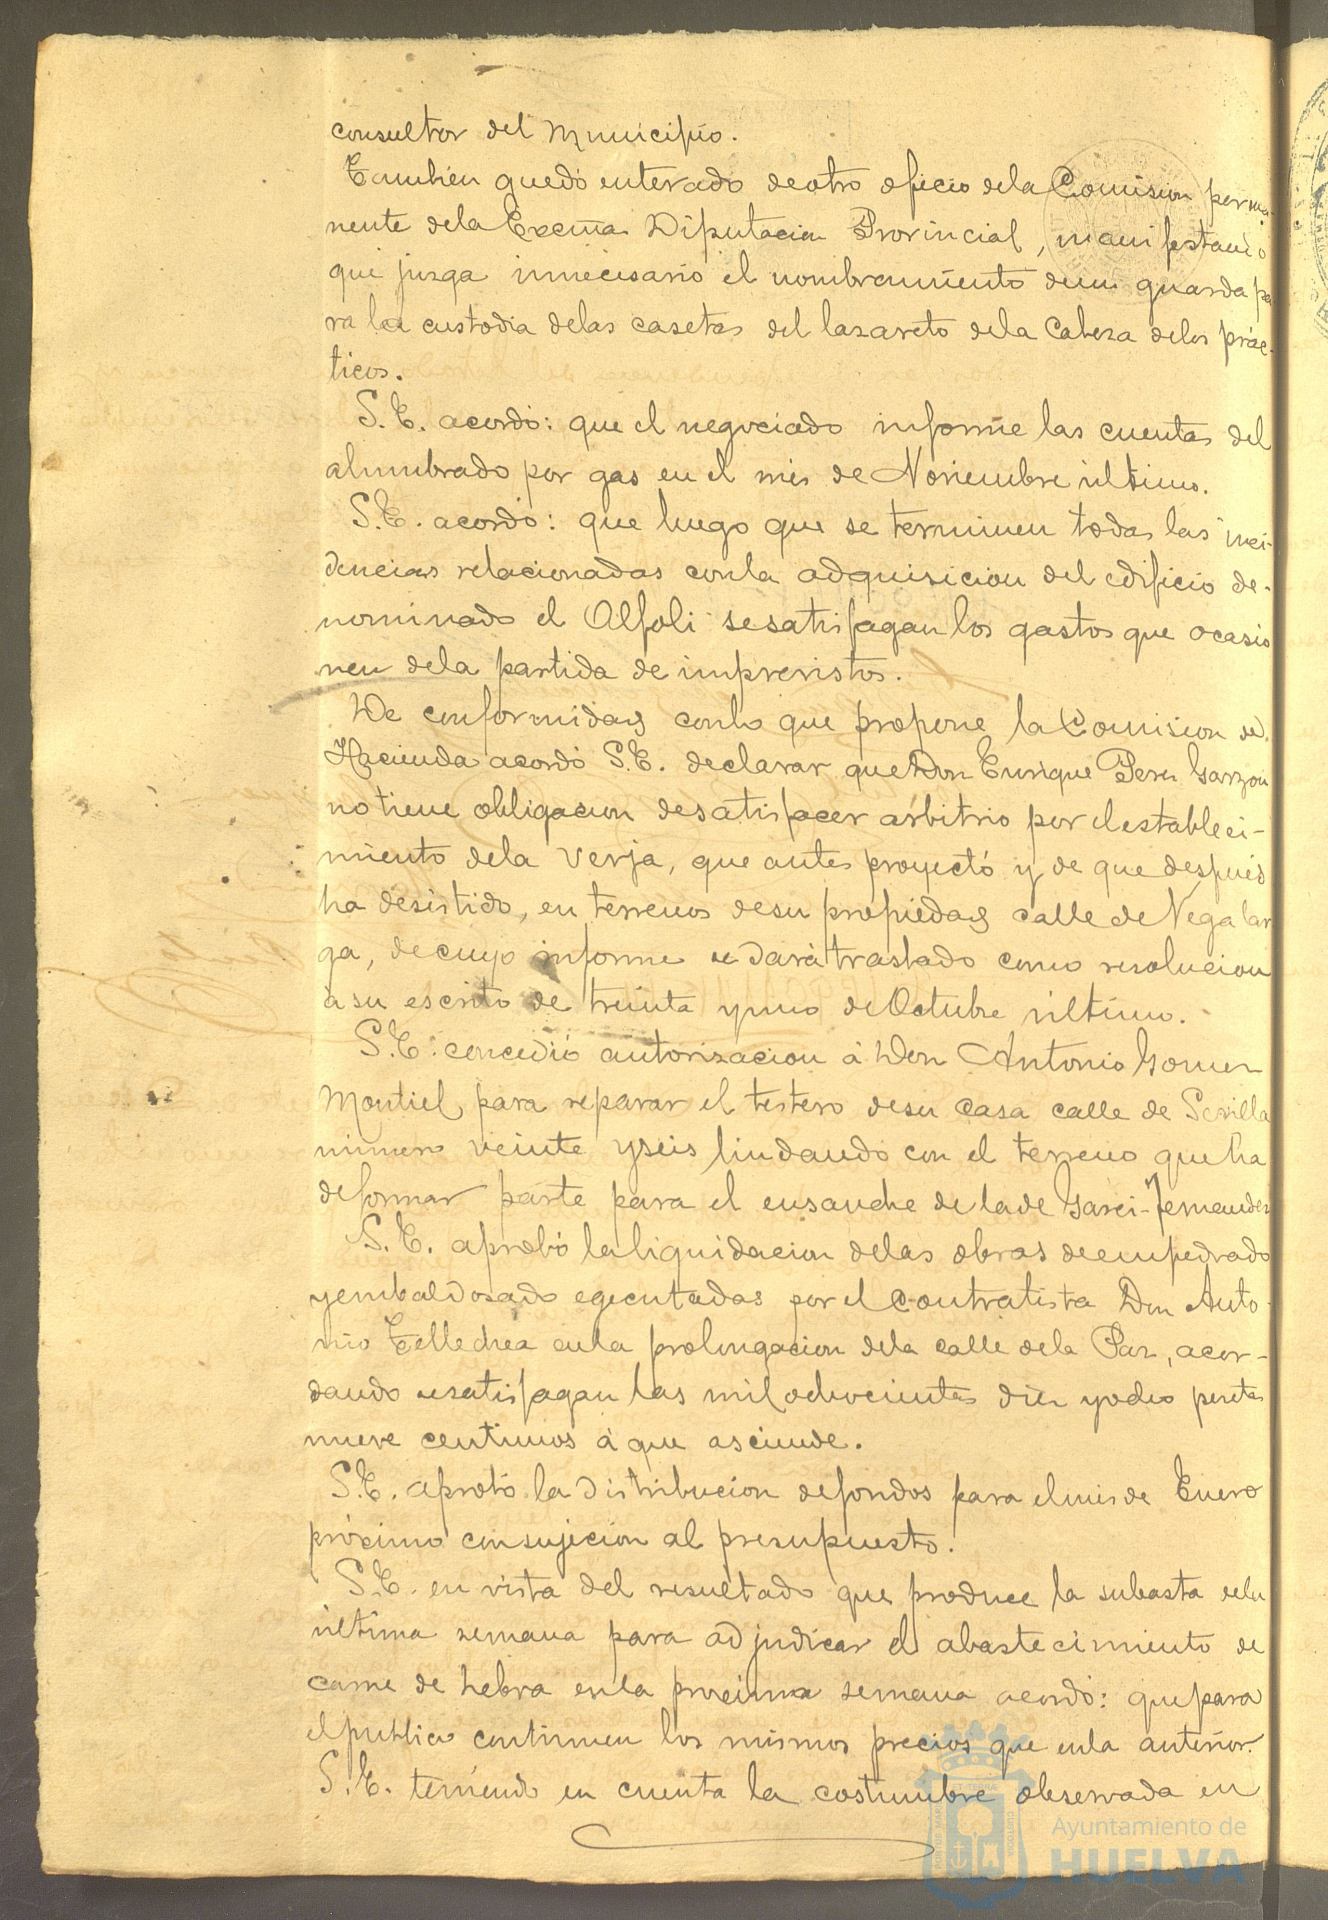 consultor del Municipio.
Tambien quedó enterado de otro oficio de la Comision perma-
nente de la Excma Diputacion Provincial, manifestando
que juzga innecesario el nombramiento de un guarda pa
ra la custodia de las casetas del lazareto de la Cabeza de los prác-
ticos.
S.E. acordó: que el negociado informe las cuentas del
alumbrado por gas en el mes de Noviembre último.
S.E. acordó: que luego que se terminen todas las inci-
dencias relacionadas con la adquisicion del edificio de-
nominado el Alfoli se satisfagan los gastos que ocasio
nen de la partida de imprevistos.
De conformidad con lo que propone la Comision de
Hacienda acordó S.E. declarar que Don Enrique Perez Garzon
no tiene obligacion de satisfacer arbitrio por el estableci-
miento de la verja, que antes proyectó y de que despues
ha desistido, en terrenos de su propiedad calle de Vega lar
ga, de cuyo informe se dará traslado como resolucion
á su escrito de treinta y uno de Octubre último.
S.E. concedió autorizacion á Don Antonio Gomez
Montiel para reparar el testero de su casa calle de Sevilla
número veinte y seis lindando con el terreno que ha
de formar parte para el ensanche de la de Garci-Fernandez
S.E. aprobó la liquidacion de las obras de empedrado
y embaldosado egecutadas por el contratista Don Anto-
nio Tellechea en la prolongacion de la calle de la Paz, acor-
dando se satisfagan las mil ochocientas diez y ocho pesetas
nueve centimos á que asciende.
S.E. aprobó la distribucion de fondos para el mes de Enero
próximo con sujecion al presupuesto.
S.E. en vista del resultado que produce la subasta de la
última semana para adjudicar el abastecimiento de
carne de hebra en la proxima semana acordó: que para
el publico continuen los mismos precios que en la anterior.
S.E. teniendo en cuenta la costumbre observada en
Ayuntamiento de
HUELVA